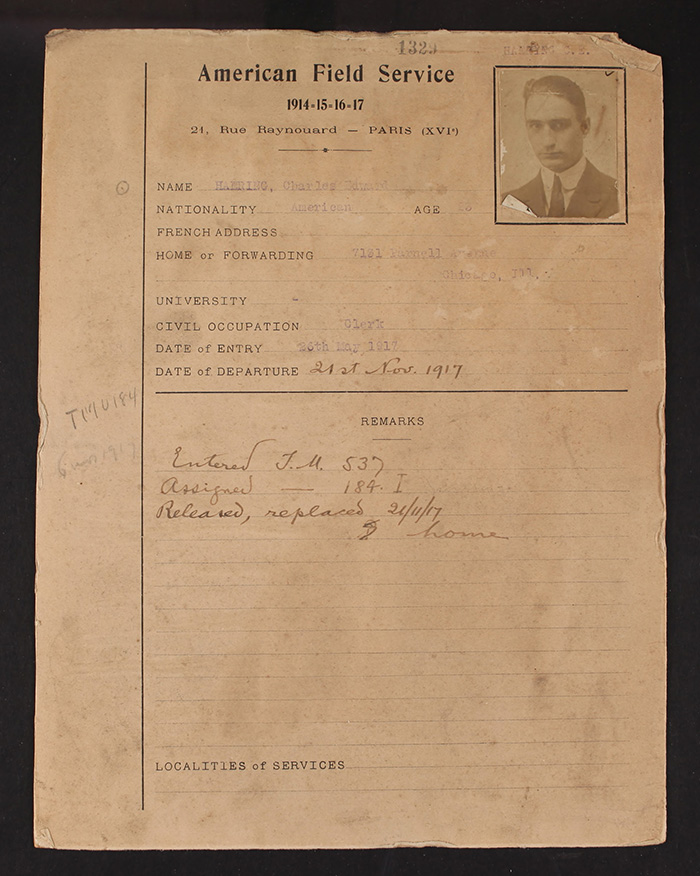 1329
American Field Service
1914=15=16=17
21, Rue Raynouard — PARIS (XVIᵉ)
NAME HAERING, Charles Edward
NATIONALITY American AGE
FRENCH ADDRESS
HOME or FORWARDING 7131
Chicago, Ill.
UNIVERSITY
CIVIL OCCUPATION Clerk
DATE of ENTRY 26th May 1917
DATE of DEPARTURE 21st Nov. 1917
TMU 184
1917
REMARKS
Entered T.M. 537
Assigned — 184. I
Released, replaced 21/11/17
home
LOCALITIES of SERVICES